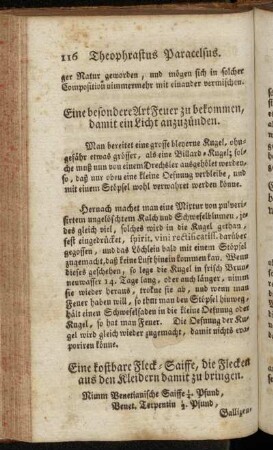 116 Theophrastus Paracelsus.
ger Natur geworden, und mögen sich in solcher
Composition nimmermehr mit einander vermischen.
Eine besondere Art Feuer zu bekommen,
damit ein Licht anzuzünden.
Man bereitet eine grosse bleyerne Kugel, ohn-
gefähr etwas grösser, als eine Billard-Kugel; sol-
che muß nun von einem Drechsler ausgehölet werden,
so, daß nur oben eine kleine Oefnung verbleibe, und
mit einem Stöpsel wohl verwahret werden könne.
Hernach machet man eine Mixtur von pulveri-
sirtem ungelöschtem Kalch und Schwefelblumen, je-
des gleich viel, solches wird in die Kugel gethan,
fest eingedrücket, spirit. vini rectificatiss. darüber
gegossen, und das Löchlein bald mit einem Stöpsel
zugemacht, daß keine Luft hinein kommen kan. Wenn
dieses geschehen, so lege die Kugel in frisch Brun-
nenwasser 14. Tage lang, oder auch länger, nimm
sie wieder heraus, trokne sie ab, und wenn man
Feuer haben will, so thut man den Stöpsel hinweg,
hält einen Schwefelfaden in die kleine Oefnung der
Kugel, so hat man Feuer. Die Oefnung der Ku-
gel wird gleich wieder zugemacht, damit nichts eva-
poriren könne.
Eine kostbare Fleck-Saiffe, die Flecken
aus den Kleidern damit zu bringen.
Nimm Venetianische Saiffe ¼. Pfund,
Venet. Terpentin ¼. Pfund,
Gallizen-